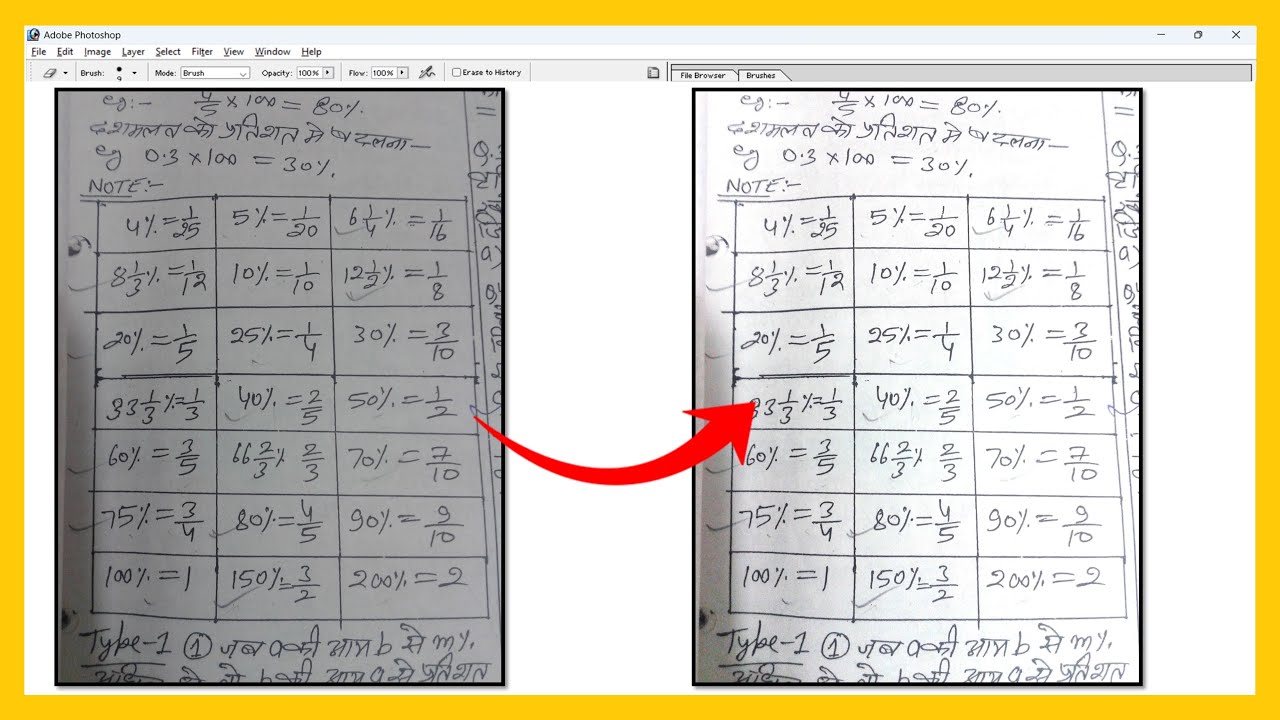 Adobe Photoshop
File Edit Image Layer Select Filter View Window Help
Brush: 9 Mode: Brush Opacity: 100% Flow: 100% Erase to History File Browser Brushes
eg:- 4/5 × 100 = 80%.
दशमलव को प्रतिशत मे बदलना—
eg 0.3 × 100 = 30%.
NOTE:-
4% = 1/25 5% = 1/20 6 1/4 % = 1/16
8 1/3 % = 1/12 10% = 1/10 12 1/2 % = 1/8
20% = 1/5 25% = 1/4 30% = 3/10
33 1/3 % = 1/3 40% = 2/5 50% = 1/2
60% = 3/5 66 2/3 % 2/3 70% = 7/10
75% = 3/4 80% = 4/5 90% = 9/10
100% = 1 150% = 3/2 200% = 2
Type-1 ① जब a की आय b से m%.
b की आय a से प्रतिशत
eg:- 4/5 × 100 = 80%.
दशमलव को प्रतिशत मे बदलना—
eg 0.3 × 100 = 30%.
NOTE:-
4% = 1/25 5% = 1/20 6 1/4 % = 1/16
8 1/3 % = 1/12 10% = 1/10 12 1/2 % = 1/8
20% = 1/5 25% = 1/4 30% = 3/10
33 1/3 % = 1/3 40% = 2/5 50% = 1/2
60% = 3/5 66 2/3 % 2/3 70% = 7/10
75% = 3/4 80% = 4/5 90% = 9/10
100% = 1 150% = 3/2 200% = 2
Type-1 ① जब a की आय b से m%.
b की आय a से प्रतिशत